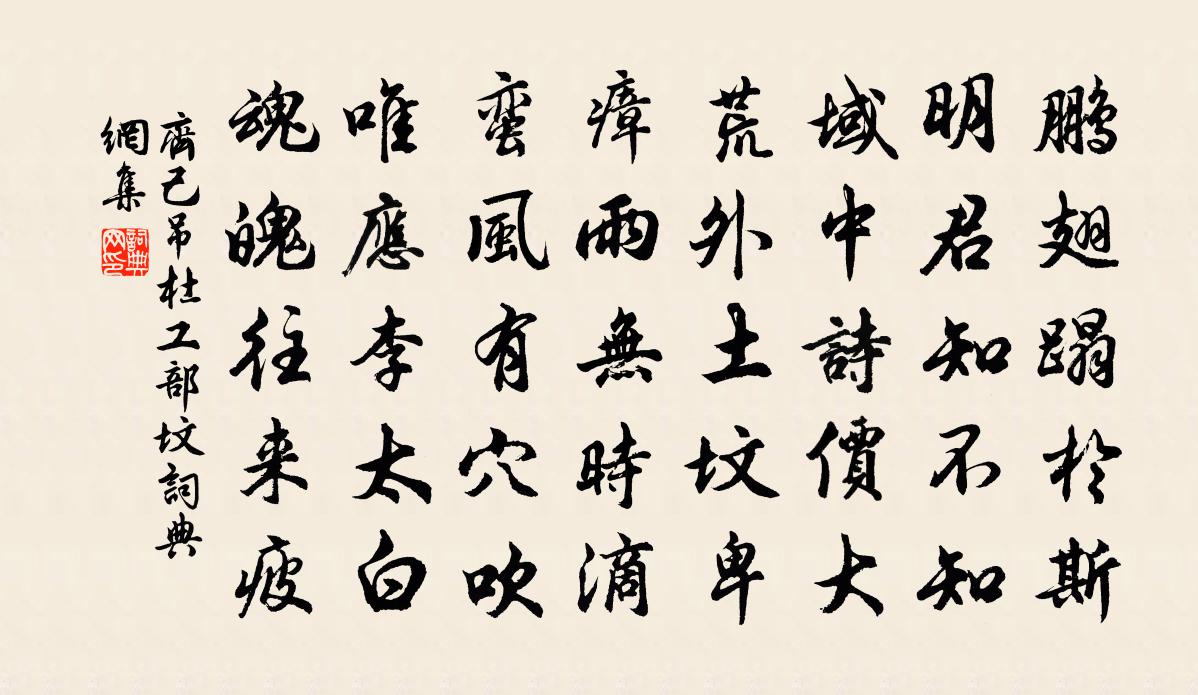 鹏翅蹋於斯
明君知不知
域中詩價大
荒外土坟卑
瘴雨無時滴
蛮風有穴吹
唯應李太白
魂魄往来疲
齊己吊杜工部坟詞典
網集
詞典網印